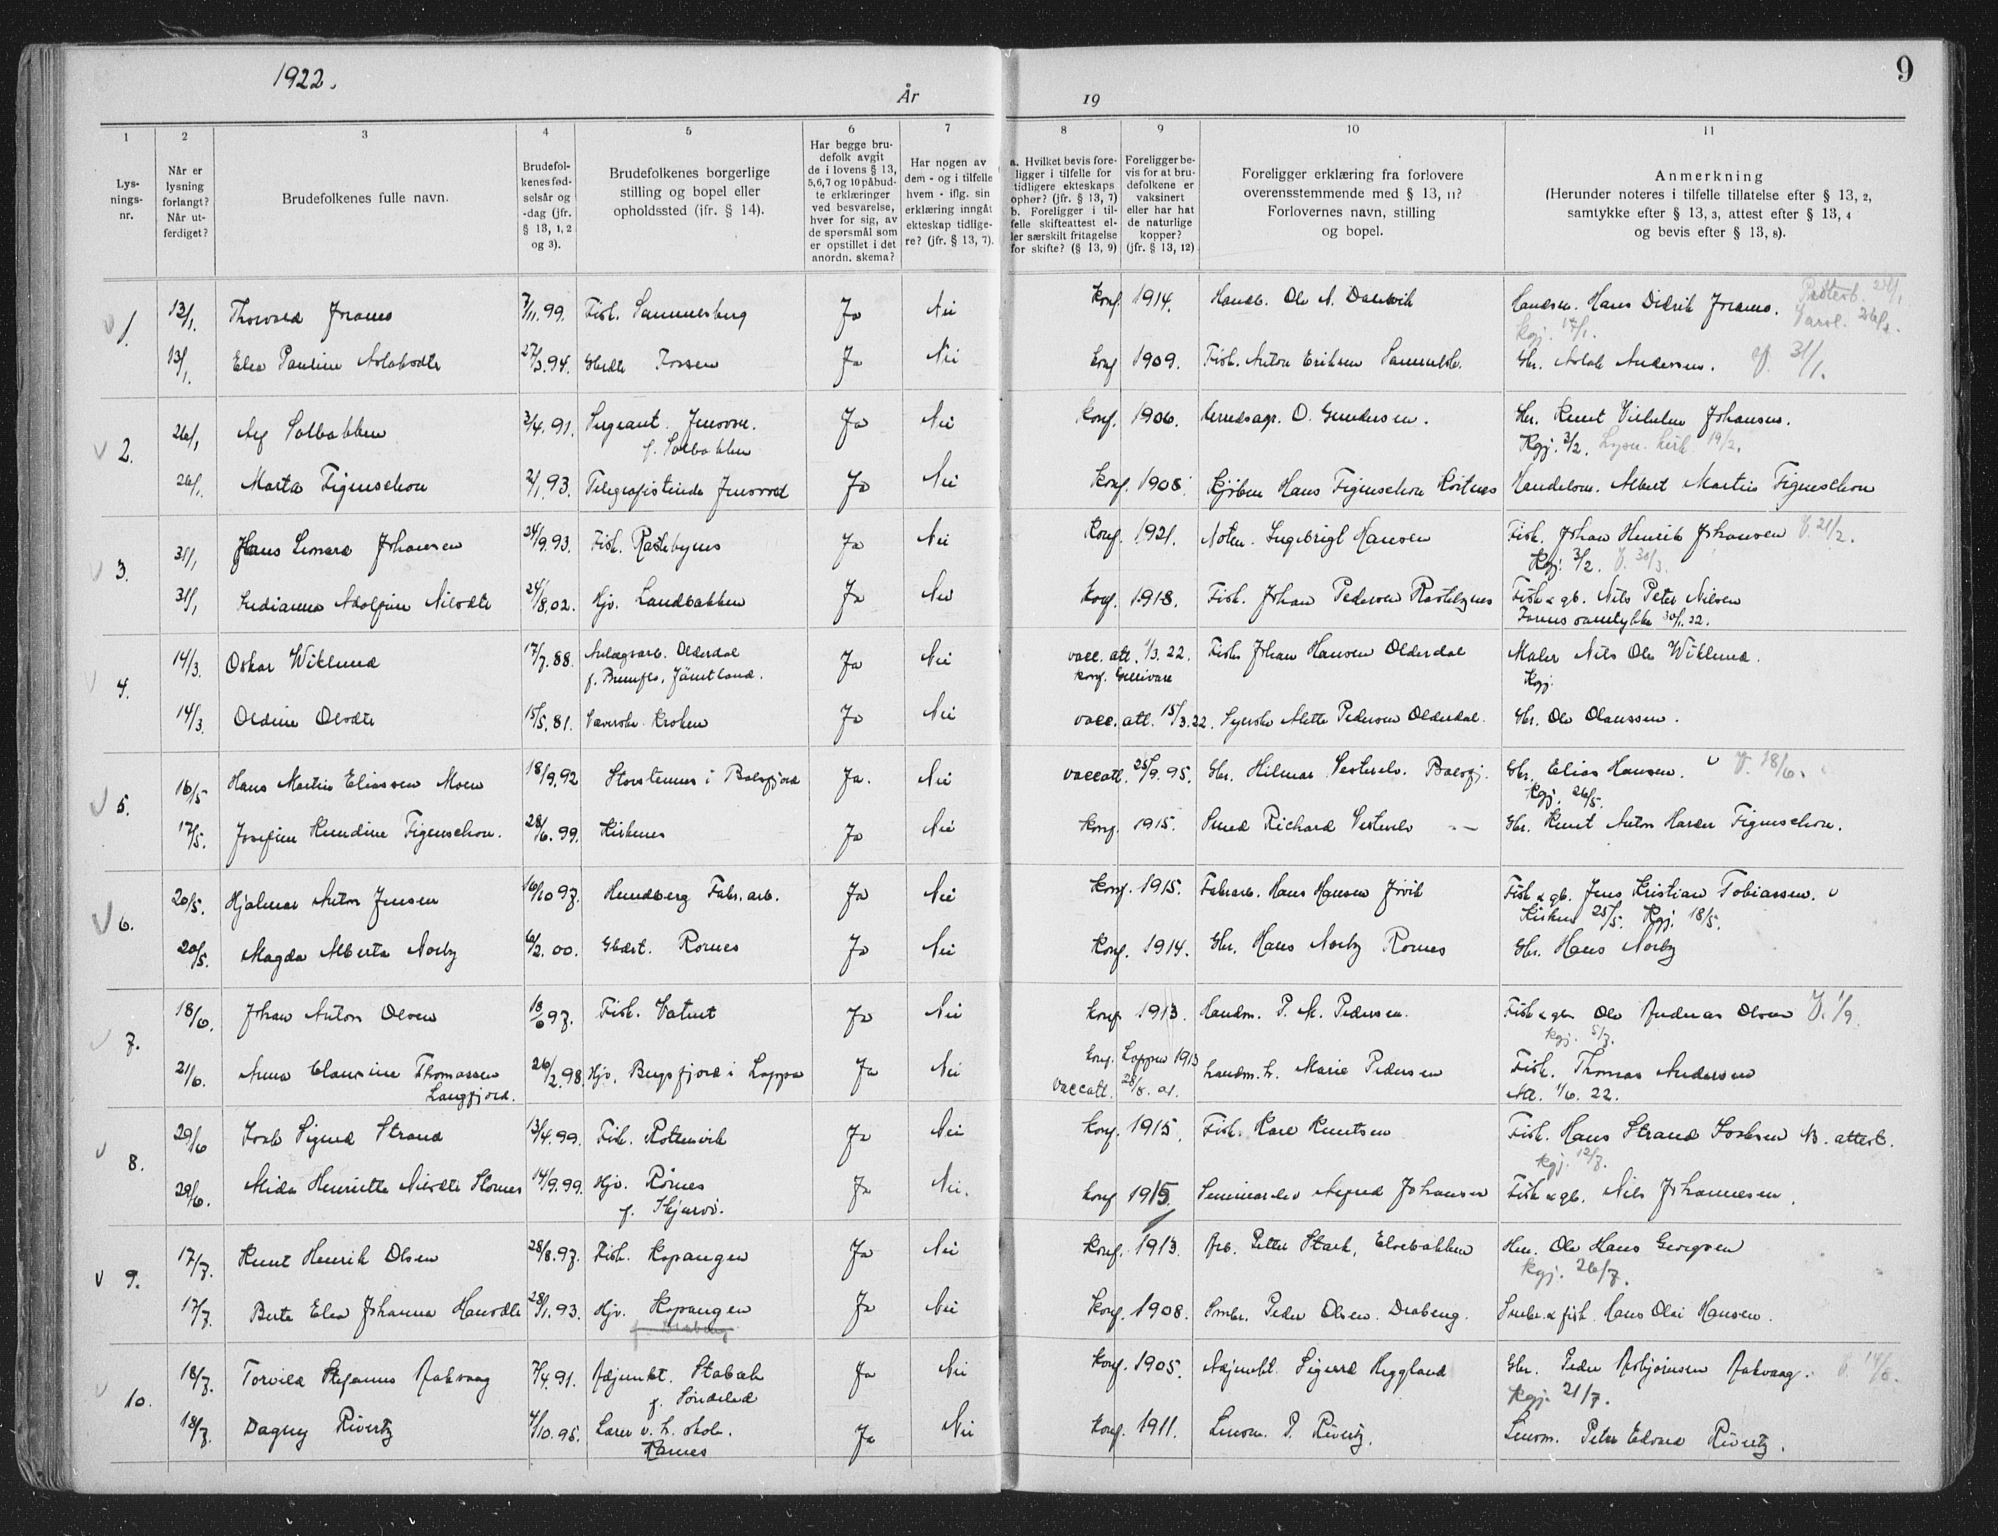 1922.
År
19
9
1 2 3 4 5 6 7 8 9 10 11
Lys-
nings-
nr.
Når er
lysning
forlangt?
Når ut-
ferdiget?
Brudefolkenes fulle navn.
Brudefol-
kenes fød-
selsår og
-dag (jfr.
§ 13, 1, 2
og 3).
Brudefolkenes borgerlige
stilling og bopel eller
opholdssted (jfr. § 14).
Har begge bru-
defolk avgit
de i lovens § 13,
5, 6, 7 og 10 påbud-
te erklæringer
ved besvarelse,
hver for sig, av
de spørsmål som
er opstillet i det
anordn. skema?
Har nogen av
dem - og i tilfelle
hvem - iflg. sin
erklæring inngåt
ekteskap tidlige-
re? (jfr. § 13, 7).
a. Hvilket bevis fore-
ligger i tilfelle for
tidligere ekteskaps
ophør? (jfr. § 13, 7)
b. Foreligger i til-
felle skifteattest el-
ler særskilt fritagelse
for skifte? (§ 13, 9)
Foreligger be-
vis for at bru-
defolkene er
vaksinert
eller har hat
de naturlige
kopper?
(jfr. § 13, 12)
Foreligger erklæring fra forlovere
overensstemmende med § 13, 11?
Forlovernes navn, stilling
og bopel.
Anmerkning
(Herunder noteres i tilfelle tillatelse efter § 13, 2,
samtykke efter § 13, 3, attest efter § 13, 4
og bevis efter § 13, 8).
1. 13/1. Thorvald 7/11.99. Fisk. Ja Nei Konf. 1914. Handb. Ole N. Hans Didrik
Kgj. 17/1.
13/1. Elea Pauline 27/3.94. Ja Nei Konf 1909. Fisk. Anton Eriksen Gbr. Aslak Andersen. 31/1.
2. 26/1 Alf Solbakken 3/4.91. Sergeant. Ja Nei Konf. 1906. O. Gundersen. Knut Vilhelm Johansen.
f. Solbakken Kgj. 3/2. 19/2.
26/1. Marta Figenschou 2/1.93. Telegrafistinde Ja Nei Konf. 1908. Hans Figenschou Albert Martin Figenschou
3. 31/1 Hans Leonard Johansen 24/9.93. Fisk. Rastebynes Ja Nei Konf. 1921. Ingebrigt Hansen Fisk. Johan Henrik Johansen V. 21/2.
Kgj. 3/2.
31/1 Adolfine Nilsdtr 24/8.02. Hjv. Landbakken Ja Nei Konf. 1918. Fisk. Johan Pedersen Rastebynes Fisk & gb. Nils Peter Nilsen
samtykke 30/1.22.
4. 14/3. Oskar Wiklund 17/7.88. Anlægsarb. Olderdal Ja Nei vacc. att. 1/3.22. Johan Hansen Olderdal Maler Nils Ole Wiklund.
f. Brunflo, Jämtland. konf. Gellivare Kgj.
14/3. Oldine Olsdtr 15/5.81. Kroken Ja Nei vacc. att. 15/3.22. Alette Pedersen Olderdal. Gbr. Ole Olaussen.
5. 16/5 Hans Martin Eliassen Moen 18/9.92 Storstennes i Balsfjord Ja. Nei vaccatt. 25/9.95. Gbr. Hilmar Balsfj. Gbr. Elias Hansen. V. 18/6.
Kgj. 26/5.
17/5. Josefine Kundine Figenschou. 28/6.99. Kirkenes Ja Nei Konf. 1915. Smed Richard Gbr. Knut Anton Figenschou.
6. 20/5. Hjalmar Anton Jensen 16/10 97. Hundberg Fabr. arb. Ja Nei Konf. 1915. Fabrarb. Hans Hansen Fisk & gb. Jens Kristian Tobiassen.
25/5. Kgj. 18/5.
20/5. Magda Alberta Norby 6/2.00. Rornes Ja Nei Konf. 1914. Gbr. Hans Norby Rornes Gbr. Hans Norby
7. 18/6. Johan Anton Olsen 97. Fisk. Vatnet Ja Nei Konf 1913. Handm. P. M. Pedersen. Fisk & gbr Ole Andreas Olsen V. 1/9.
Kgj. 5/7.
21/6. Anna Thomassen 26/2.98. Hjv. Bergsfjord i Loppa Ja Nei konf. Loppen 1913 handm. h. Marie Pedersen Fisk. Thomas Andersen
Langfjord. Vaccatt. 28/8.01. Att. 1/6.22.
8. 29/6 Isak Sigurd Strand 13/4.99. Fisk. Rottenvik Ja Nei Konf. 1915. Fisk. Kare Knutsen Fisk. Hans Strand Isaksen attest.
Kgj. 12/7.
29/6. Henriette Nilsdtr 14/9.99. Hjv. Rörnes Ja Nei. Konf 1915. Alfred Johansen Fisk & gb. Nils Johannesen.
f. Skjervö.
9. 17/7. Knut Henrik Olsen 28/8.97. Fisk. Kopangen Ja Nei Konf. 1913. Arb. Petter Stark, Elvebakken Ole Hans Georgsen
Kgj. 26/7.
17/7. Berte Elea Johanna Hansdtr 28/1.93. Hjv. Kopangen Ja Nei Konf. 1908. Smbr. Peder Olsen. Draberg. & fisk. Hans Olai Hansen.
f. Draberg
10. 18/7. Torvild Stefanus Aakvaag 7/4.91. Adjunkt. Stabæk Ja Nei Konf. 1905. Adjunkt. Sigurd Heggland Gbr. Peder Asbjørnsen Aakvaag.
f. Söndeled Kgj. 21/7.
18/7. Dagny Rivertz 4/10.95. Lærer v. h. skol. Ja Nei Konf. 1911. Lensm. P. Rivertz. Lensm. Peter Edvard Rivertz.
Karnes